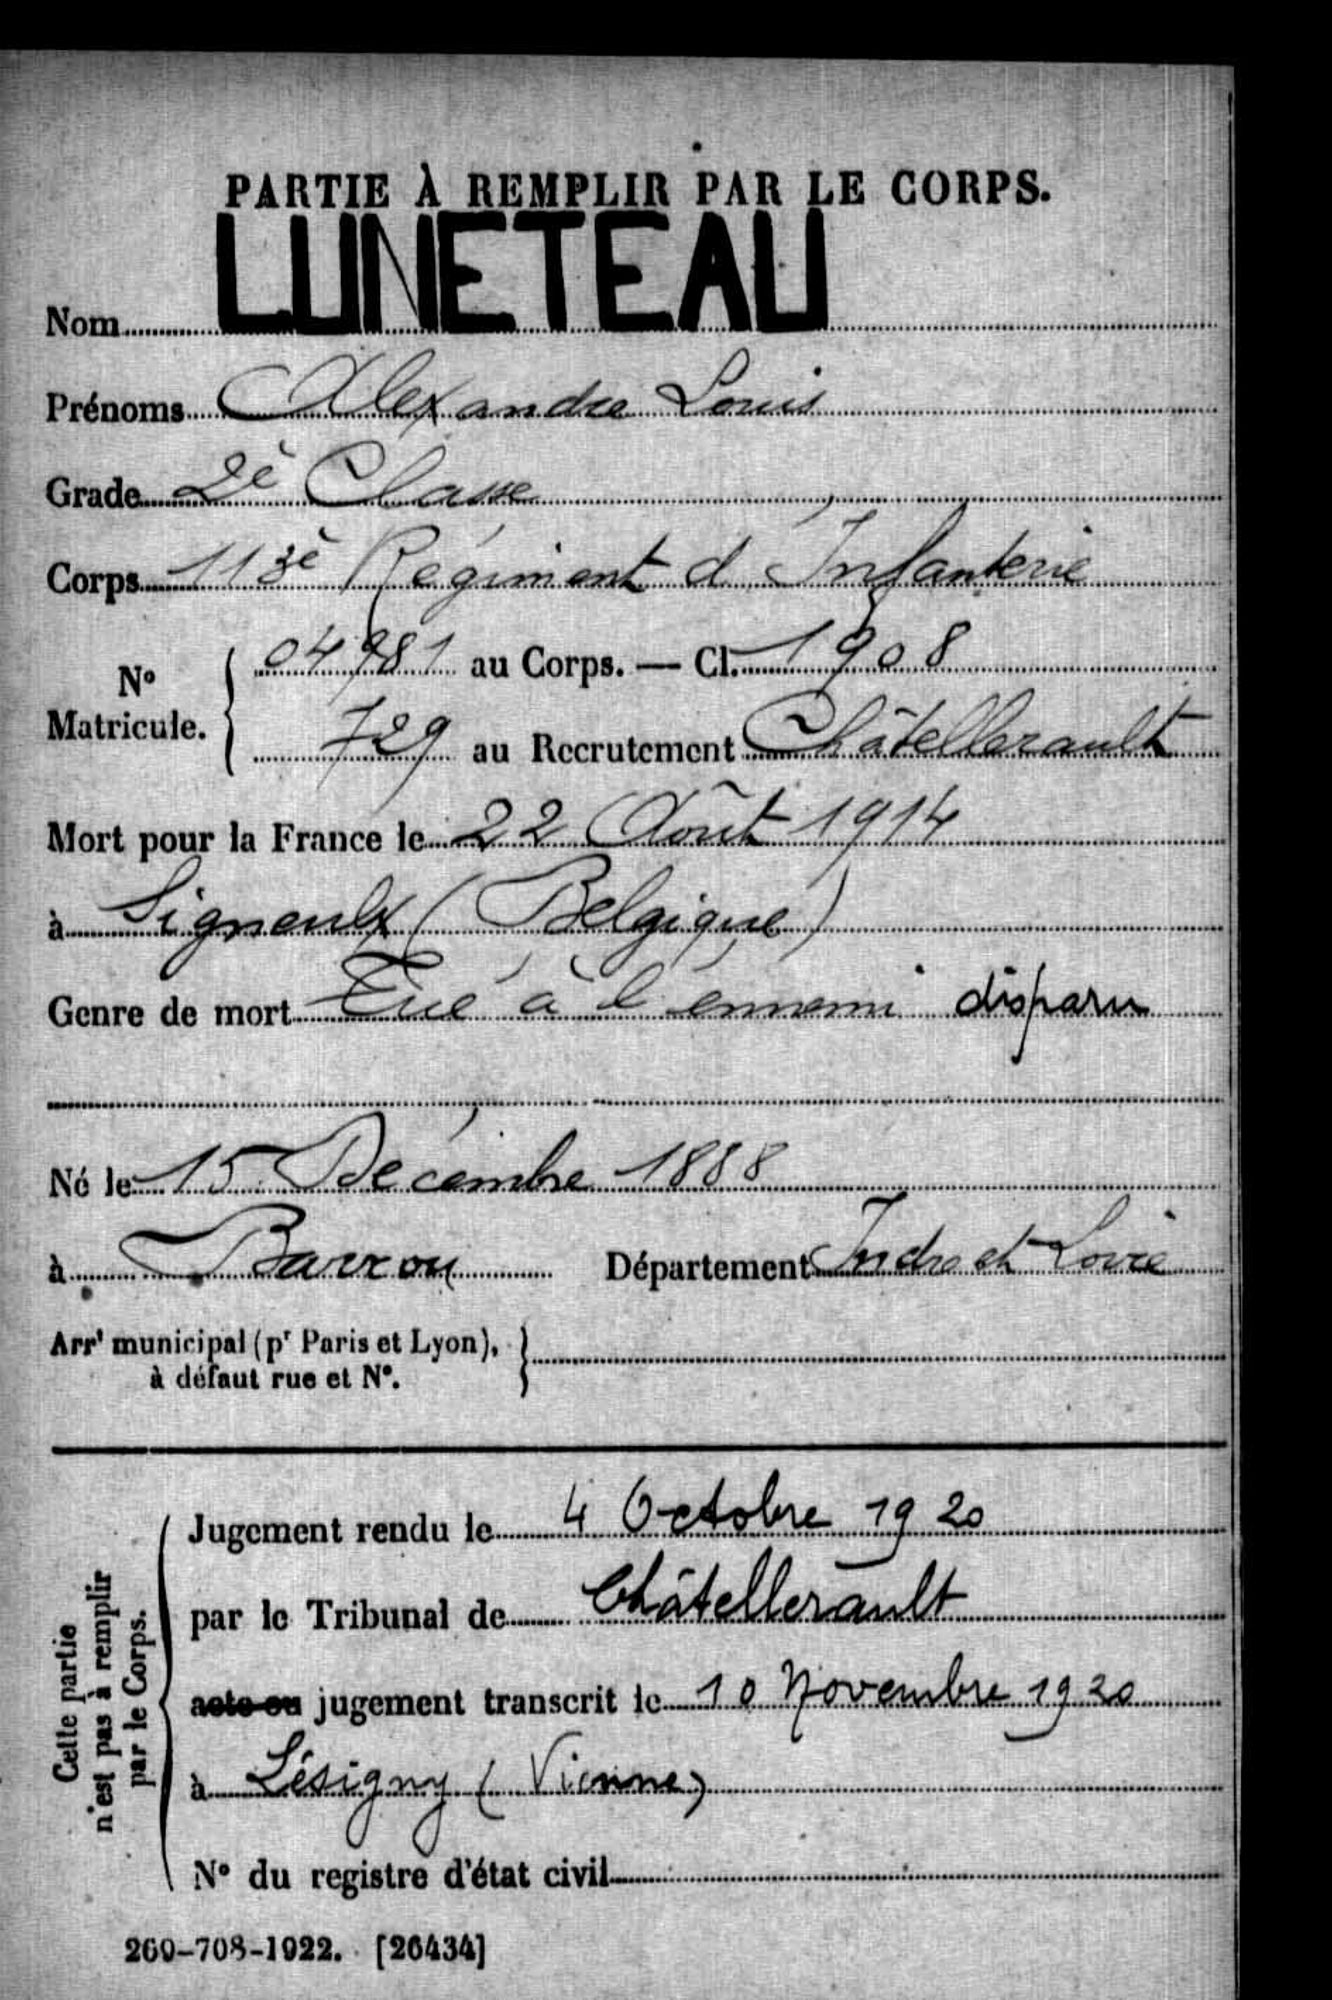 PARTIE À REMPLIR PAR LE CORPS.
Nom LUNETEAU
Prénoms Alexandre Louis
Grade 2è Classe
Corps 113è Régiment d'Infanterie
N° Matricule. 04981 au Corps. — Cl. 1908
729 au Recrutement Châtellerault
Mort pour la France le 22 Août 1914
à Signeulx (Belgique)
Genre de mort Tué à l'énnemi disparu
Né le 15 Décembre 1888
à Barrou Département Indre et Loire
Arrt municipal (pr Paris et Lyon),
à défaut rue et N°.
Cette partie
n'est pas à remplir
par le Corps.
Jugement rendu le 4 Octobre 1920
par le Tribunal de Châtellerault
acte ou jugement transcrit le 10 Novembre 1920
à Lésigny (Vienne)
N° du registre d'état civil
269-708-1922. [26434]